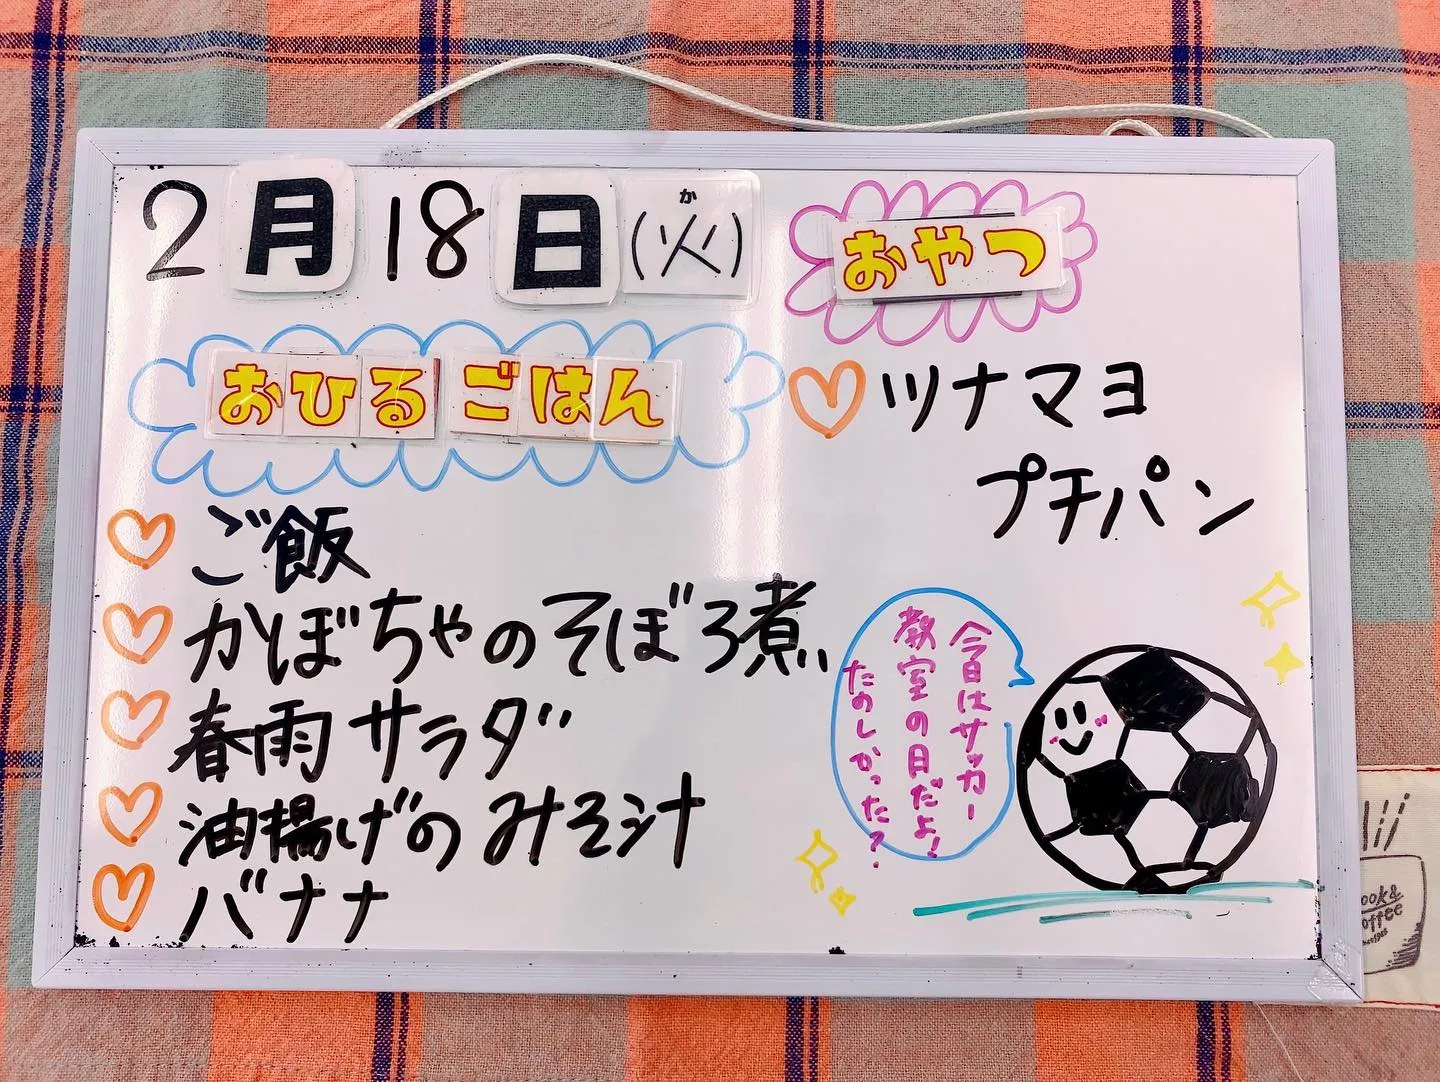 2月18日(火)
か
おひるごはん
ご飯
かぼちゃのそぼろ煮
春雨サラダ
油揚げのみそ汁
バナナ
おやつ
ツナマヨ
プチパン
今日はサッカー
教室の日だよ!
たのしかった?
ook&
offee